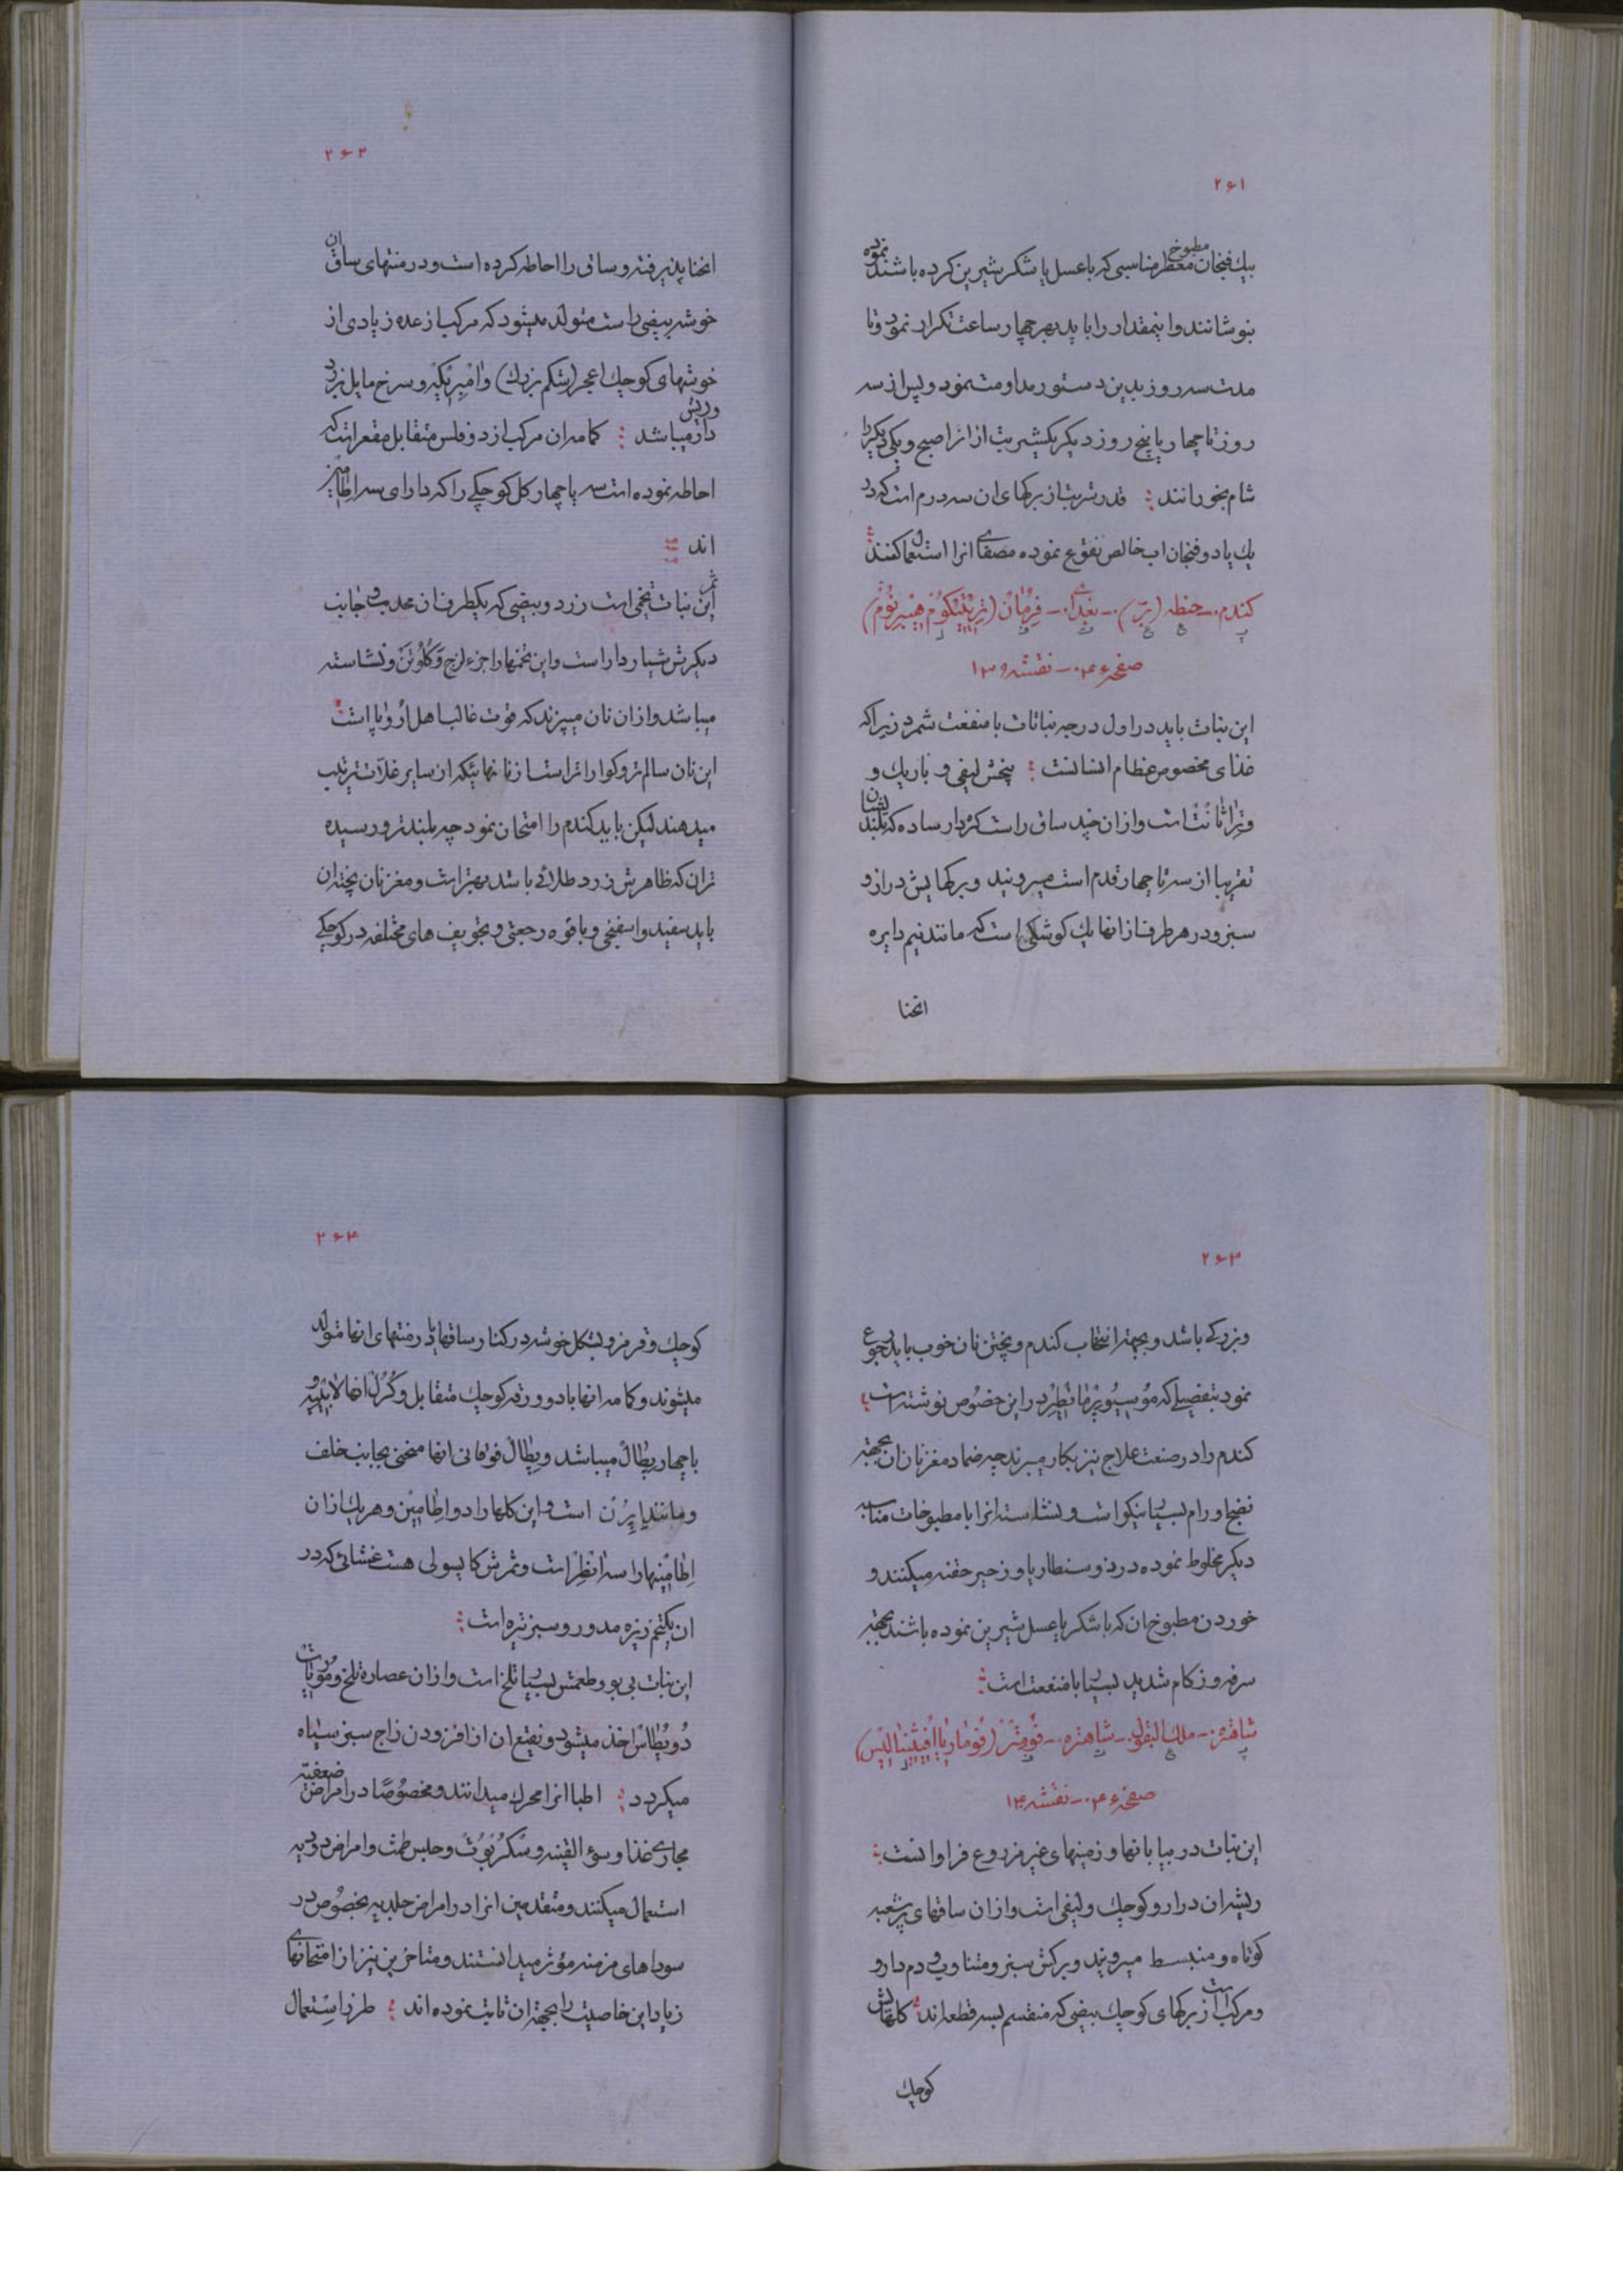 ۲۶۱
بیك فنجان مطبوخ معطر مناسبی که با عسل یا شکر شیرین کرده باشند نموده
بنوشانند و اینمقدار را باید بهر چهار ساعت تکرار نمود و تا
مدت سه روز بدین دستور مداومت نمود و پس از سه
روز تا چهار یا پنج روز دیگر یکشربت از انرا صبح و یکی دیگر را
شام بخورانند : قدر شربت از برکهای ان سه درم است که در
یك یا دو فنجان اب خالص نقوع نموده مصفای انرا استعمال کنند :
کندم ـ حنطه (برّ) ـ بغدای ـ فِرُمانْ (تریتیکومْ هیبرنومْ)
صفحه ۴۰۶ ـ نقشه ۱۳۰
این نبات باید در اول درجه نباتات با منفعت شمرد زیرا که
غذای مخصوص عظام انسانست : بیخش لیفی و باریك و
است و از ان چند ساق راست کره دار ساده که بلندیشان
تقریبا از سه تا چهار قدم است میروید و برکهایش دراز و
سبز و در هر طرف از انها یك کوشکی است که مانند نیم دایره
انحنا
۲۶۲
انحنا پذیرفته و ساق را احاطه کرده است و در منتهای ساق ان
خوشه بیضی راست متولد میشود که مرکب از عده زیادی از
خوشهای کوچك اعجر (شکم بزرك) و اَمْبِریکِه و سرخ مایل بزرد
و ریش دار میباشد : کامه ان مرکب از دو فلس متقابل مقعر است که
احاطه نموده است سه یا چهار کل کوچکی را که دارای سه اِطامین
اند :
ثمر این نبات تخمی است زرد و بیضی که یکطرف ان محدب و جانب
دیکرش شیاردار است و این تخمها را جزء لزج و کلوتن و نشاسته
میباشد و از ان نان میپزند که قوت غالب اهل اُروُپا است :
این نان سالم تر و کوارا تر است از نانهائیکه از سایر غلات ترتیب
میدهند لیکن باید کندم را امتحان نمود چه بلندتر و رسیده
تران که ظاهرش زرد طلائی باشد بهتر است و مغز نان پخته ان
باید سفید و اسفنجی و با قوه رجعتی و تجویف های مختلفه در کوچکی
۲۶۳
و بزرکی باشد و بجهة انتخاب کندم و پختن نان خوب باید رجوع
نمود بتفصیلی که مُوسیُو پَرْمانْطِیِرْ در این خصُوص نوشته است :
کندم را در صنعت علاج نیز بکار میبرند چه ضماد مغز نان ان بجهة
نضج اورام بسیار نیکو است و نشاسته انرا با مطبوخات مناسبه
دیکر مخلوط نموده در دوسنطاریا و زحیر حقنه میکنند و
خوردن مطبوخ ان که با شکر یا عسل شیرین نموده باشند بجهة
سرفه و زکام شدید بسیار با منفعت است :
شاهتره ـ ملك البقول ـ شاهتره ـ فُومِتِرْ (فُومارْیا اُفیثینالیسْ)
صفحه ۴۰۶ ـ نقشه ۱۳۱
این نبات در بیابانها و زمینهای غیر مزروع فراوانست :
ریشه ان دراز و کوچك و لیفی است و از ان ساقهای پر شعبه
کوتاه و منبسط میروید و برکش سبز و متناوب و دم دار و
و مرکب است از برکهای کوچك بیضی که منقسم بسه قطعه اند : کلهایش
کوچك
۲۶۴
کوچك و قرمز و بشکل خوشه در کنار ساقها یا در منتهای انها متولد
میشوند و کامه انها با دو ورقه کوچك متقابل و کُرُلْ انها لابیّیِه و
با چهار پِطالْ میباشد و پِطالْ فوقانی انها منحنی بجانب خلف
و مانند اِپِرُن است و این کلها را دو اِطامین و هر یك از ان
اِطامینها را سه انْطِر است و ثمرش کاپسولی هست غشائی که در
ان یکتخم ریزه مدور و سبز تیره است :
این نبات بی بو و طعمش بسیار تلخ است و از ان عصاره تلخ و مُورْیاتْ
دُو پُطاسْ اخذ میشود و نقیع ان از افزودن زاج سبز سیاه
میکردد : اطبا انرا محرك میدانند و مخصُوصًا در امراض ضعفیّه
مجاری غذا و سوء القنیه و سْکُرْبُوتْ و حبس طمث و امراض دودیه
استعمال میکنند و متقدمین انرا در امراض جلدیه بخصُوص در
سوداهای مزمنه مؤثر میدانستند و متاخرین نیز از امتحانهای
زیاد این خاصیت را بجهة ان ثابت نموده اند : طرز اسْتعمال